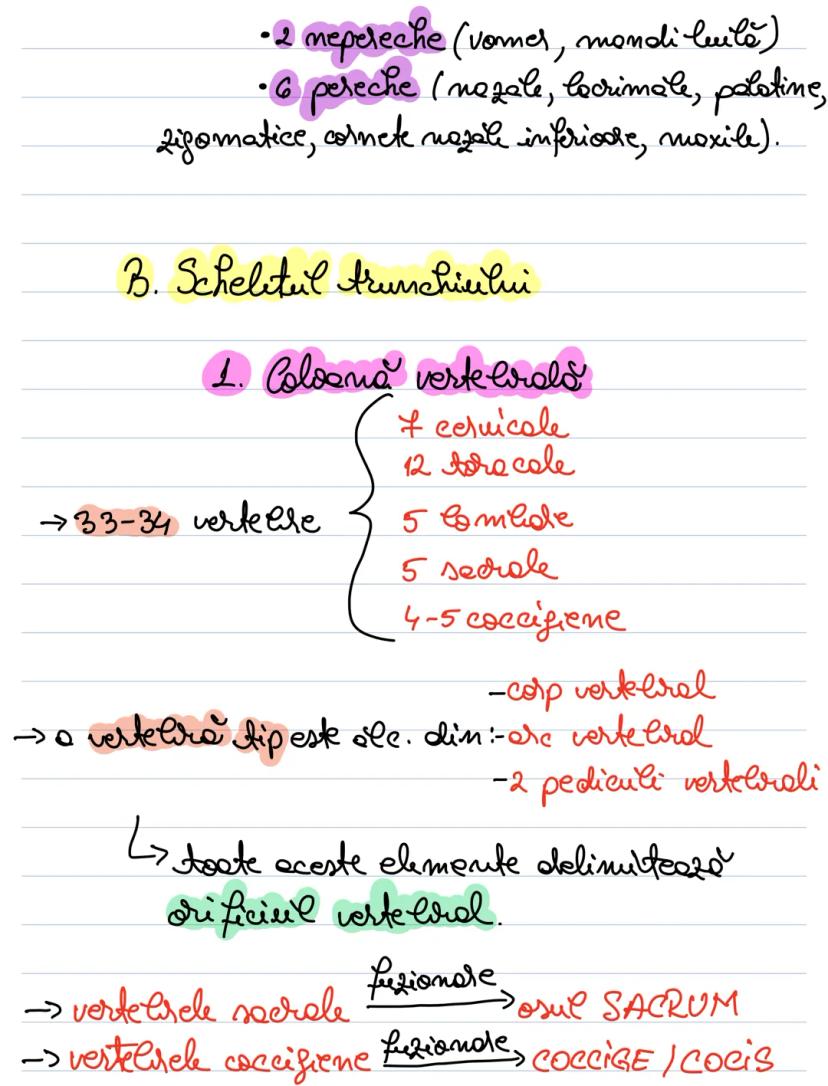 • 2 nepereche (vomer, mandibulă)
• 6 pereche (nazale, lacrimale, palatine,
zigomatice, cornete nazale inferioare, maxile).
B. Scheletul trunchiului
1. Coloană vertebrală
→ 33-34 vertebre
7 cervicale
12 toracale
5 lombare
5 sacrale
4-5 coccigiene
→ o vertebră tip este alc. din:
- corp vertebral
- arc vertebral
- 2 pediculi vertebrali
↳ toate aceste elemente delimitează
orificiul vertebral.
→ vertebrele sacrale fuzionare → osul SACRUM
→ vertebrele coccigiene fuzionare → COCCIGE / COCIS